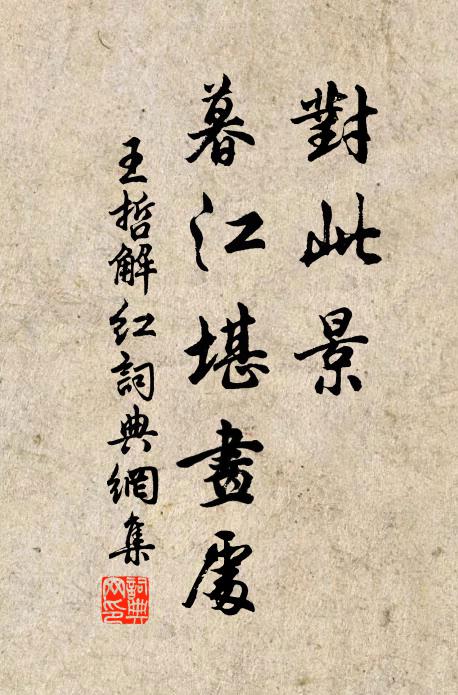 對此景
暮江堪畫處
王哲解红詞典網集
詞典
文印